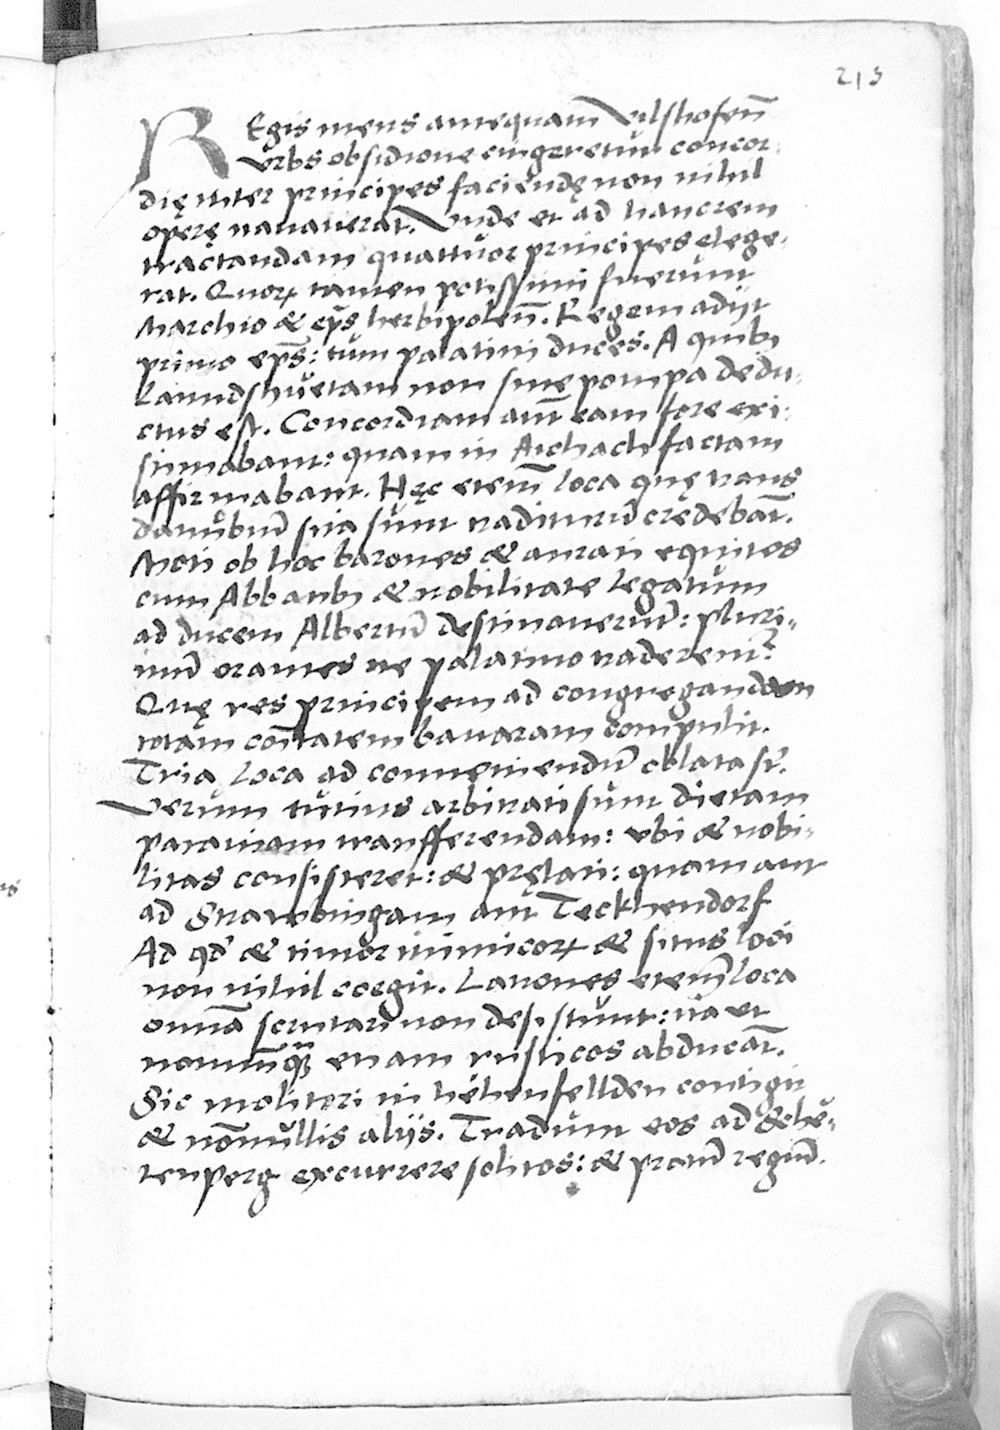 213
REgis mens antequam Vilshofen̄
vrbs obsidione cingeretur concor-
dię inter principes faciendę non nihil
operę nauauerat. Vnde et ad hanc rem
tractandam quattuor principes elege-
rat. Quoꝝ tamen potissimi fuerunt
Marchio & ep̄s herbipolen̄. Regem adijt
primo ep̄s: tum palatini duces. A quibꝫ
Lanndshuetam non sine pompa dedu-
ctus est. Concordiam aūt eam fore exi-
stimabant: quam in Aichach factam
affirmabant. Hęc etem̄ loca quę trans
danůbiū sita sunt traditurū credebāt.
Moti ob hoc barones & aurati equites
cum Abbatibꝫ & nobilitate legatum
ad ducem Albertū destinauerūt: pluri-
mū orantes ne palatino traderent̄.
Quę res principem ad congregandam
totam cōitatem bauaram compulit.
Tria loca ad conueniendū oblata st̄.
Verum tutius arbitrati sunt dietam
patauiam transfferendam: vbi & nobi-
litas consisteret: & pręlati: quam aut
ad Straubingam aut Teckhendorf
Ad qd̄ & timor inimicoꝝ & situs loci
non nihil coegit. Latrones etem̄ loca
omnia scrutari non desistunt: ita vt
nonnūqꝫ etiam rusticos abducāt.
Sic molitori in hehenfellden contigit
& nōnullis alijs. Tradunt eos ad Schě-
tenperg excurrere solitos: & pratū regiū.